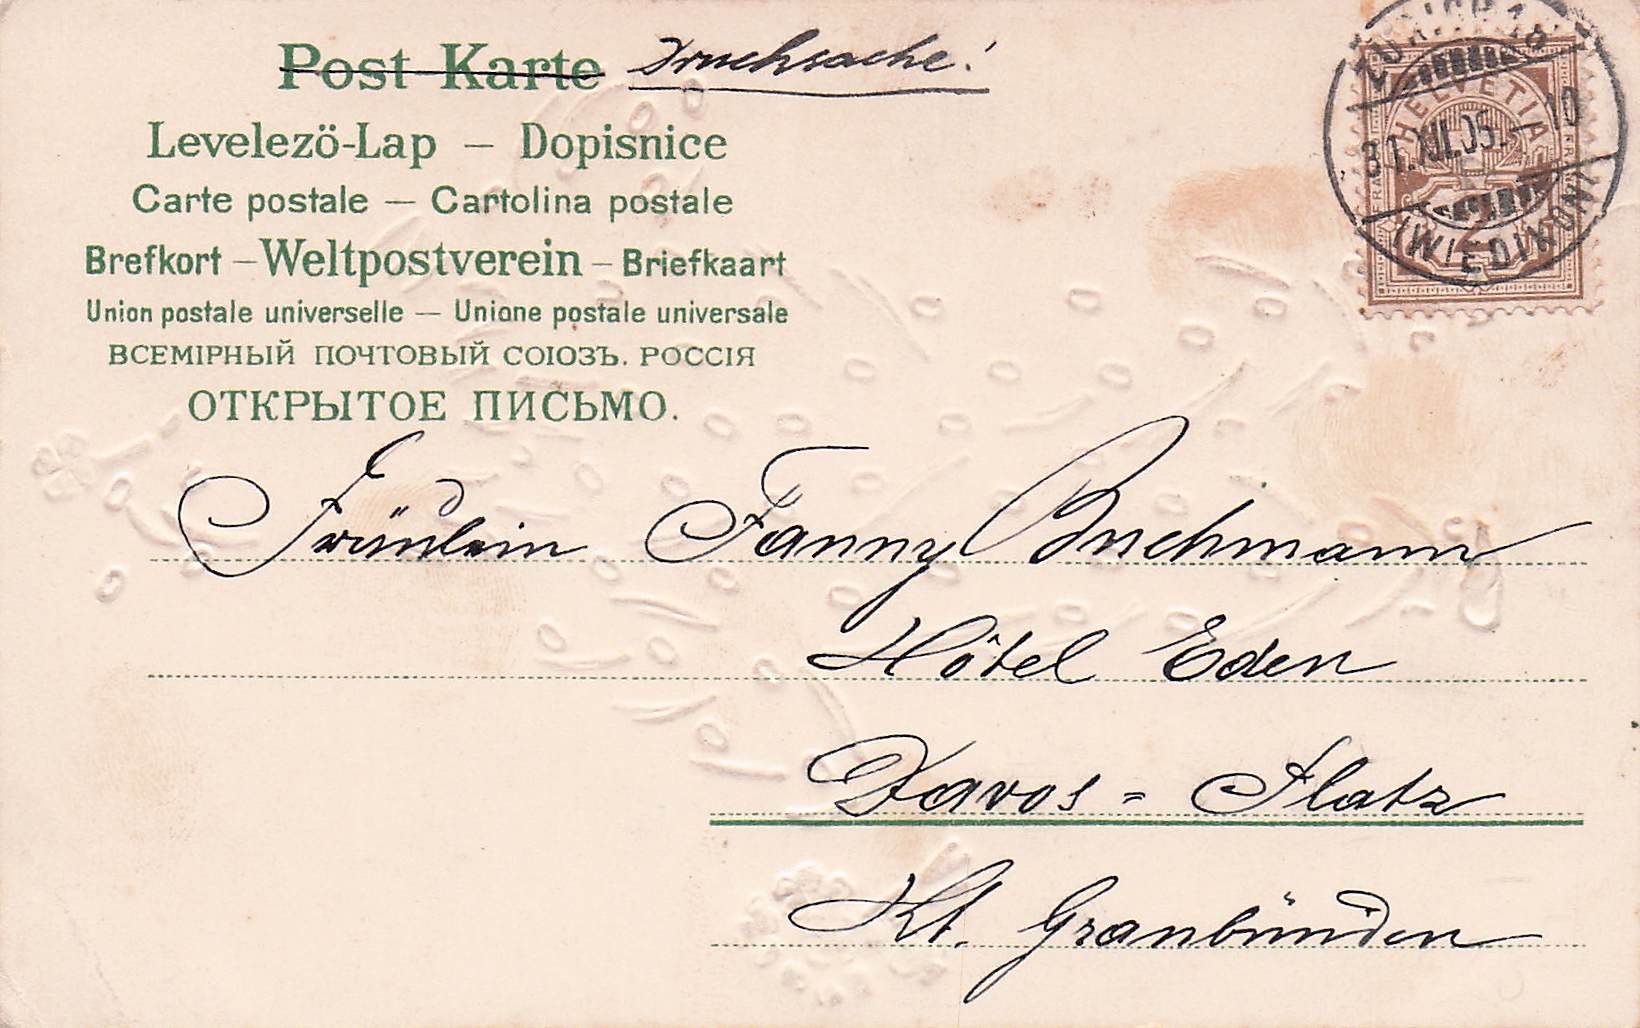 Post Karte Drucksache!
Levelező-Lap – Dopisnice
Carte postale – Cartolina postale
Brefkort – Weltpostverein – Briefkaart
Union postale universelle – Unione postale universale
ВСЕМІРНЫЙ ПОЧТОВЫЙ СОЮЗЪ. РОССІЯ
ОТКРЫТОЕ ПИСЬМО.
HELVETIA
2
31.XII.05. – 10
(WIEDIKON)
Fräulein Fanny Buchmann
Hôtel Eden
Davos = Platz
Kt. Graubünden